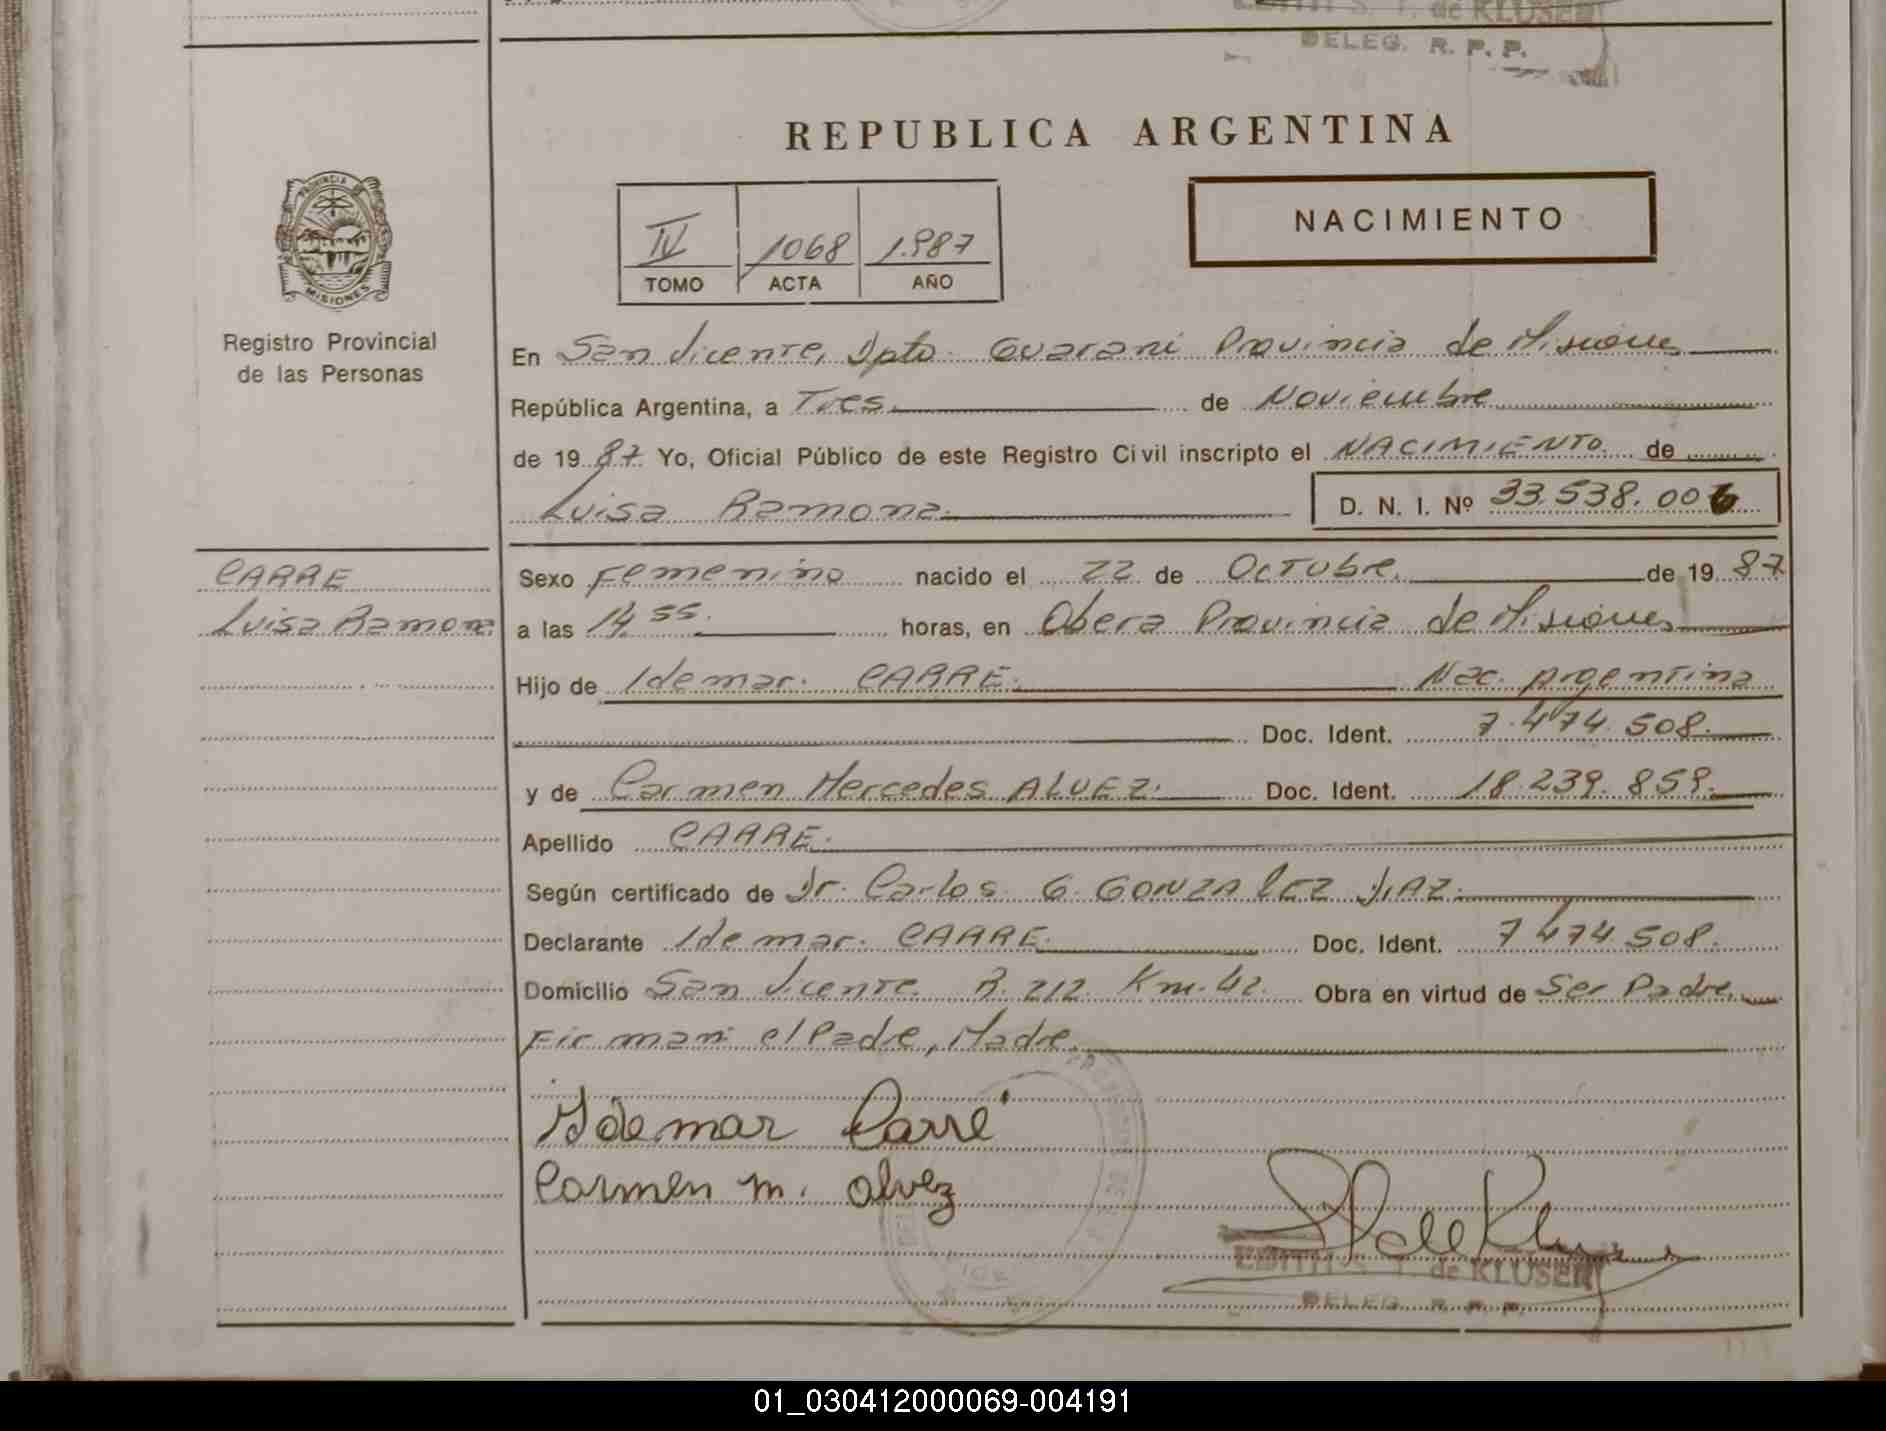 EDITH S. T. de KLUSER
DELEG. R. P. P.
REPUBLICA ARGENTINA
PROVINCIA DE
MISIONES
Registro Provincial
de las Personas
IV 1068 1.987
TOMO ACTA AÑO
NACIMIENTO
En San Vicente, Dpto. Guarani Provincia de Misiones
República Argentina, a Tres de Noviembre
de 19 87 Yo, Oficial Público de este Registro Civil inscripto el NACIMIENTO de
Luisa Ramona D. N. I. Nº 33.538.006
CARRE
Luisa Ramona
Sexo Femenino nacido el 22 de Octubre de 19 87
a las 14,55. horas, en Obera Provincia de Misiones
Hijo de Idemar. CARRE. Nac. Argentina
Doc. Ident. 7.474.508.
y de Carmen Mercedes ALVEZ. Doc. Ident. 18.239.859.
Apellido CARRE.
Según certificado de Dr. Carlos G. GONZALEZ DIAZ.
Declarante Idemar. CARRE. Doc. Ident. 7.474.508.
Domicilio San Vicente R. 212 Km. 42. Obra en virtud de Ser Padre,
Firman: el Padre, Madre.
Idemar Carré
Carmen m. alvez
EDITH S. T. de KLUSER
DELEG. R. P. P.
01_030412000069-004191